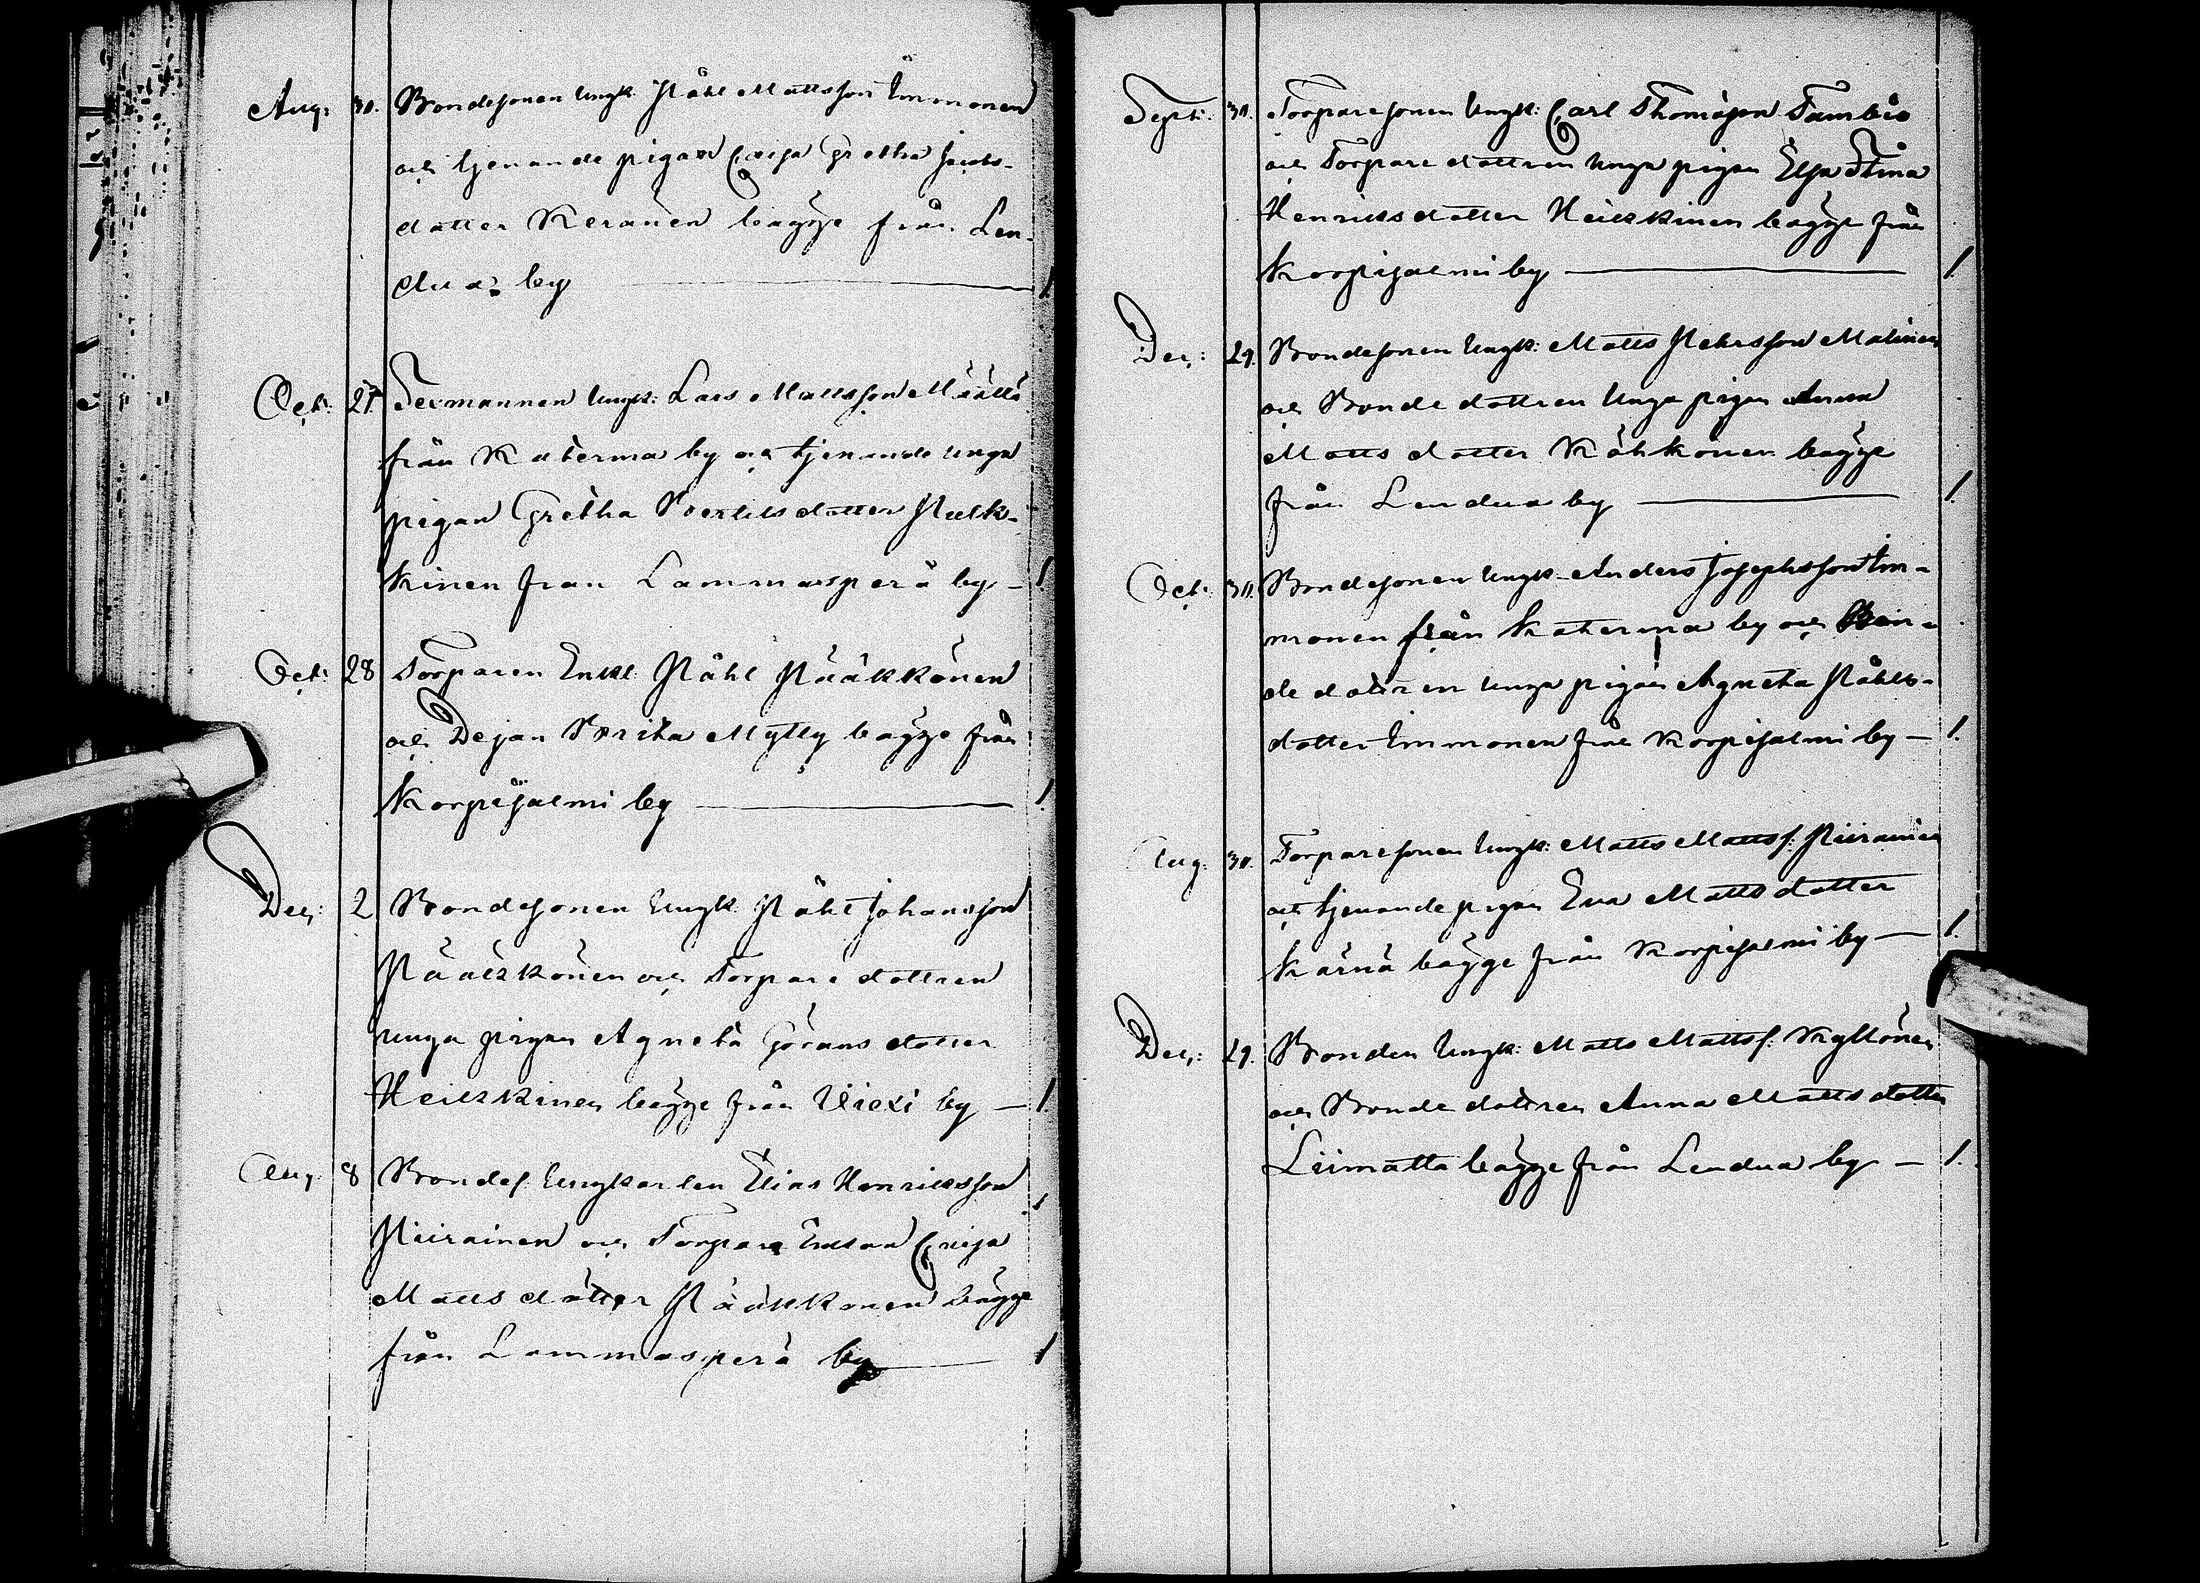 Aug: 30. Bondesonen Ungk: Påhl Mattsson Immonen
och tjenande pigan Caisa Gretha Jacobs-
dotter Keränen bägge från Len-
dua by 1
Oct: 27 Sexmannen Ungk: Lars Mattsson Määttä
från Katerma by och tjenande unga
pigan Gretha Bertilsdotter Pulk-
kinen från Lammasperä by - 1
Oct: 28 Torparen Enkl: Påhl Pääkkönen
och Dejan Brita Mylly bägge från
Korpisalmi by 1
Dec: 2 Bondesonen Ungk: Påhl Johansson
Pääkkönen och Torpare dottren
unga pigan Agneta Görans dotter
Heikkinen bägge från Viexi by - 1.
Aug: 8 Bondes. Ungkarlen Elias Henriksson
Piirainen och Torpare Enkan Caisa
Matts dotter Pääkkönen bägge
från Lammasperä by 1
Sept: 30. Torparesonen Ungk: Carl Thomasson Tambio
och Torpare dottren Unga pigan Elsa Stina
Henriksdotter Heikkinen bägge från
Korpisalmi by 1.
Dec: 29. Bondesonen Ungk: Matts Pehrsson Malinen
och Bonde dottren Unga pigan Anna
Matts dotter Kähkönen bägge
från Lendua by 1.
Oct: 30. Bondesonen Ungk: Anders Josephsson Im-
monen från Katerma by och Bon-
de dottren unga pigan Agneta Påhls-
dotter Immonen från Korpisalmi by - 1.
Aug: 30. Torparesonen Ungk: Matts Mattss: Piirainen
och tjenande pigan Eva Matts dotter
Kärnä bägge från Korpisalmi by - 1.
Dec: 29. Bonden Ungk: Matts Mattss: Kyllönen
och Bonde dottren Anna Matts dotter
Liimatta bägge från Lendua by - 1.